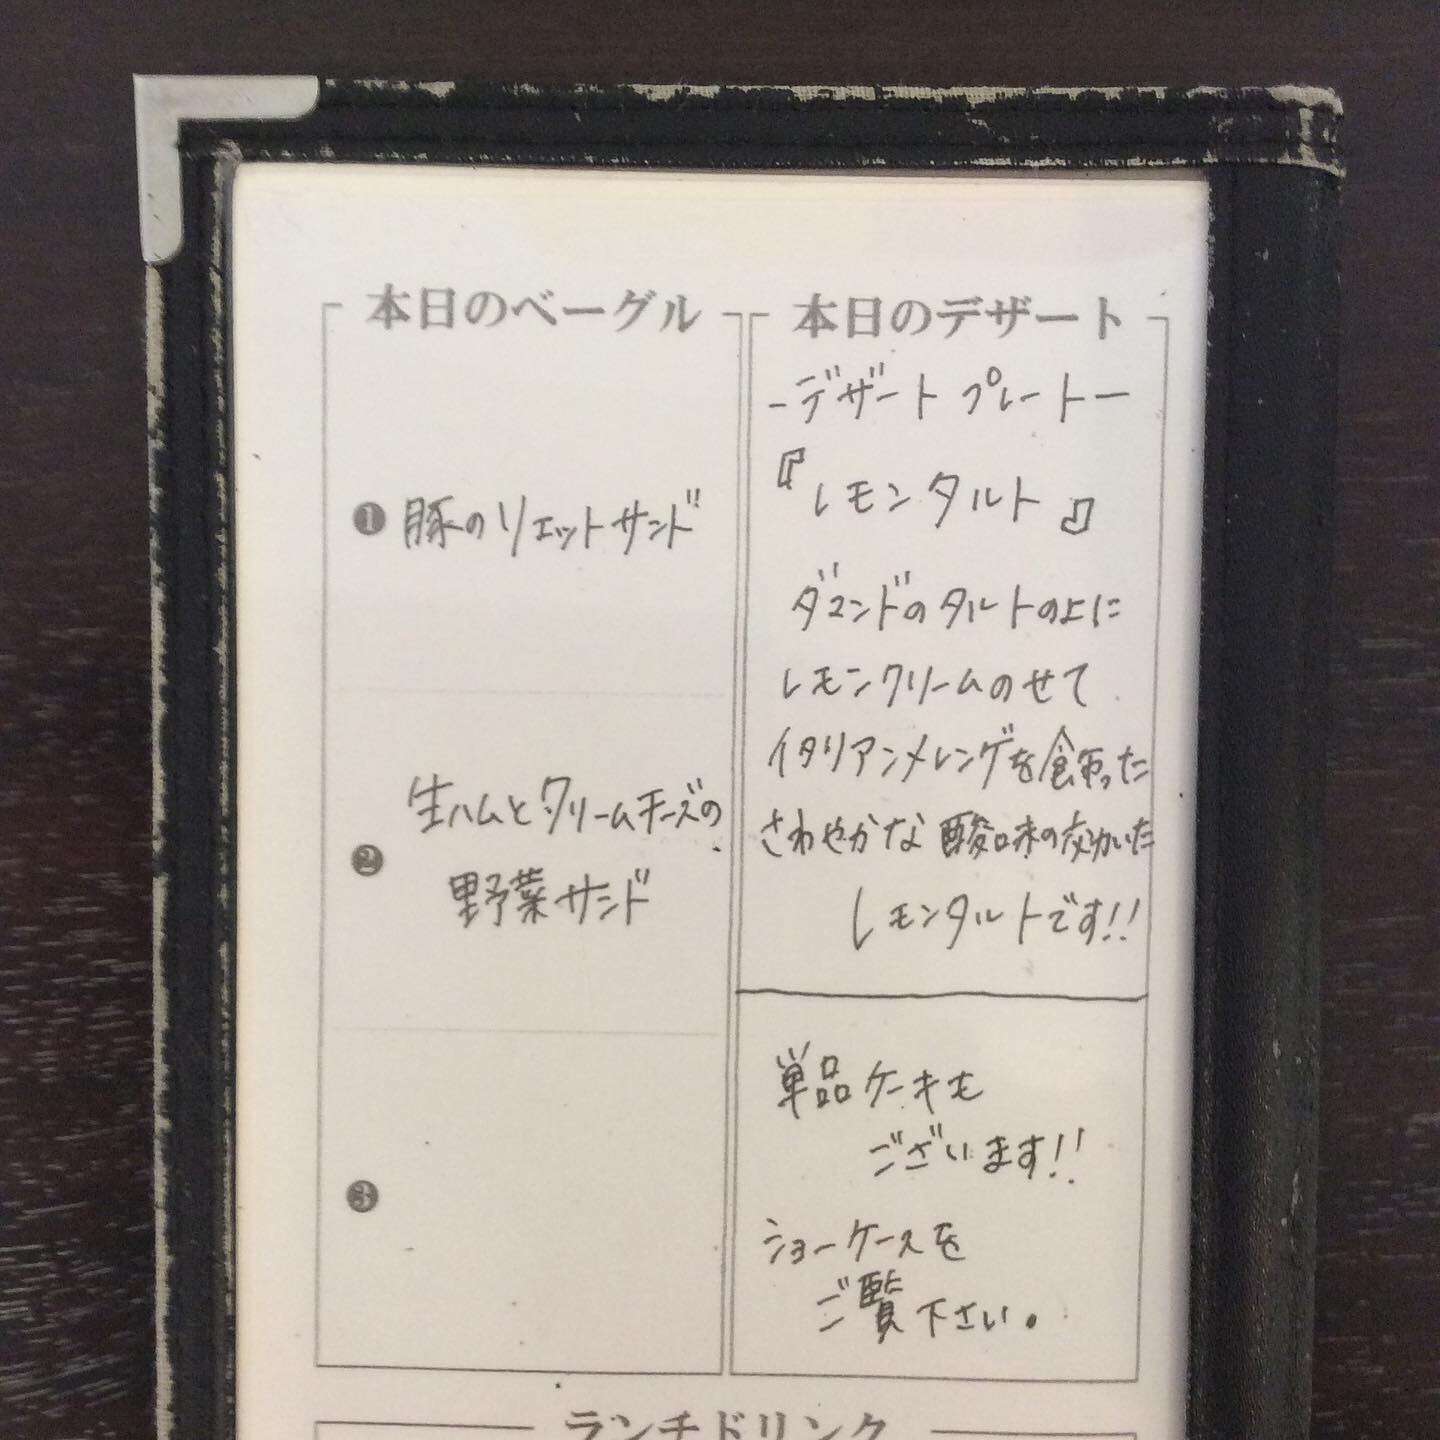 本日のベーグル
❶ 豚のリエットサンド
❷ 生ハムとクリームチーズの
野菜サンド
❸
本日のデザート
-デザート プレートー
『レモンタルト』
ダマンドのタルトの上に
レモンクリームのせて
イタリアンメレンゲを飾った
さわやかな酸味の効いた
レモンタルトです!!
単品ケーキも
ございます!!
ショーケースを
ご覧下さい。
ランチドリンク